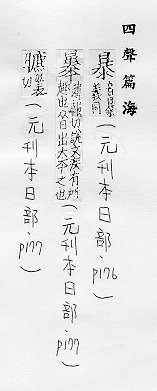 四聲篇海
暴 音暴義同(元刊本日部.p176)
暴 蒲報切說文疾有所趣也又曰出大𠦍之也(元刊本日部.p177)
切(元刊本日部.p177)